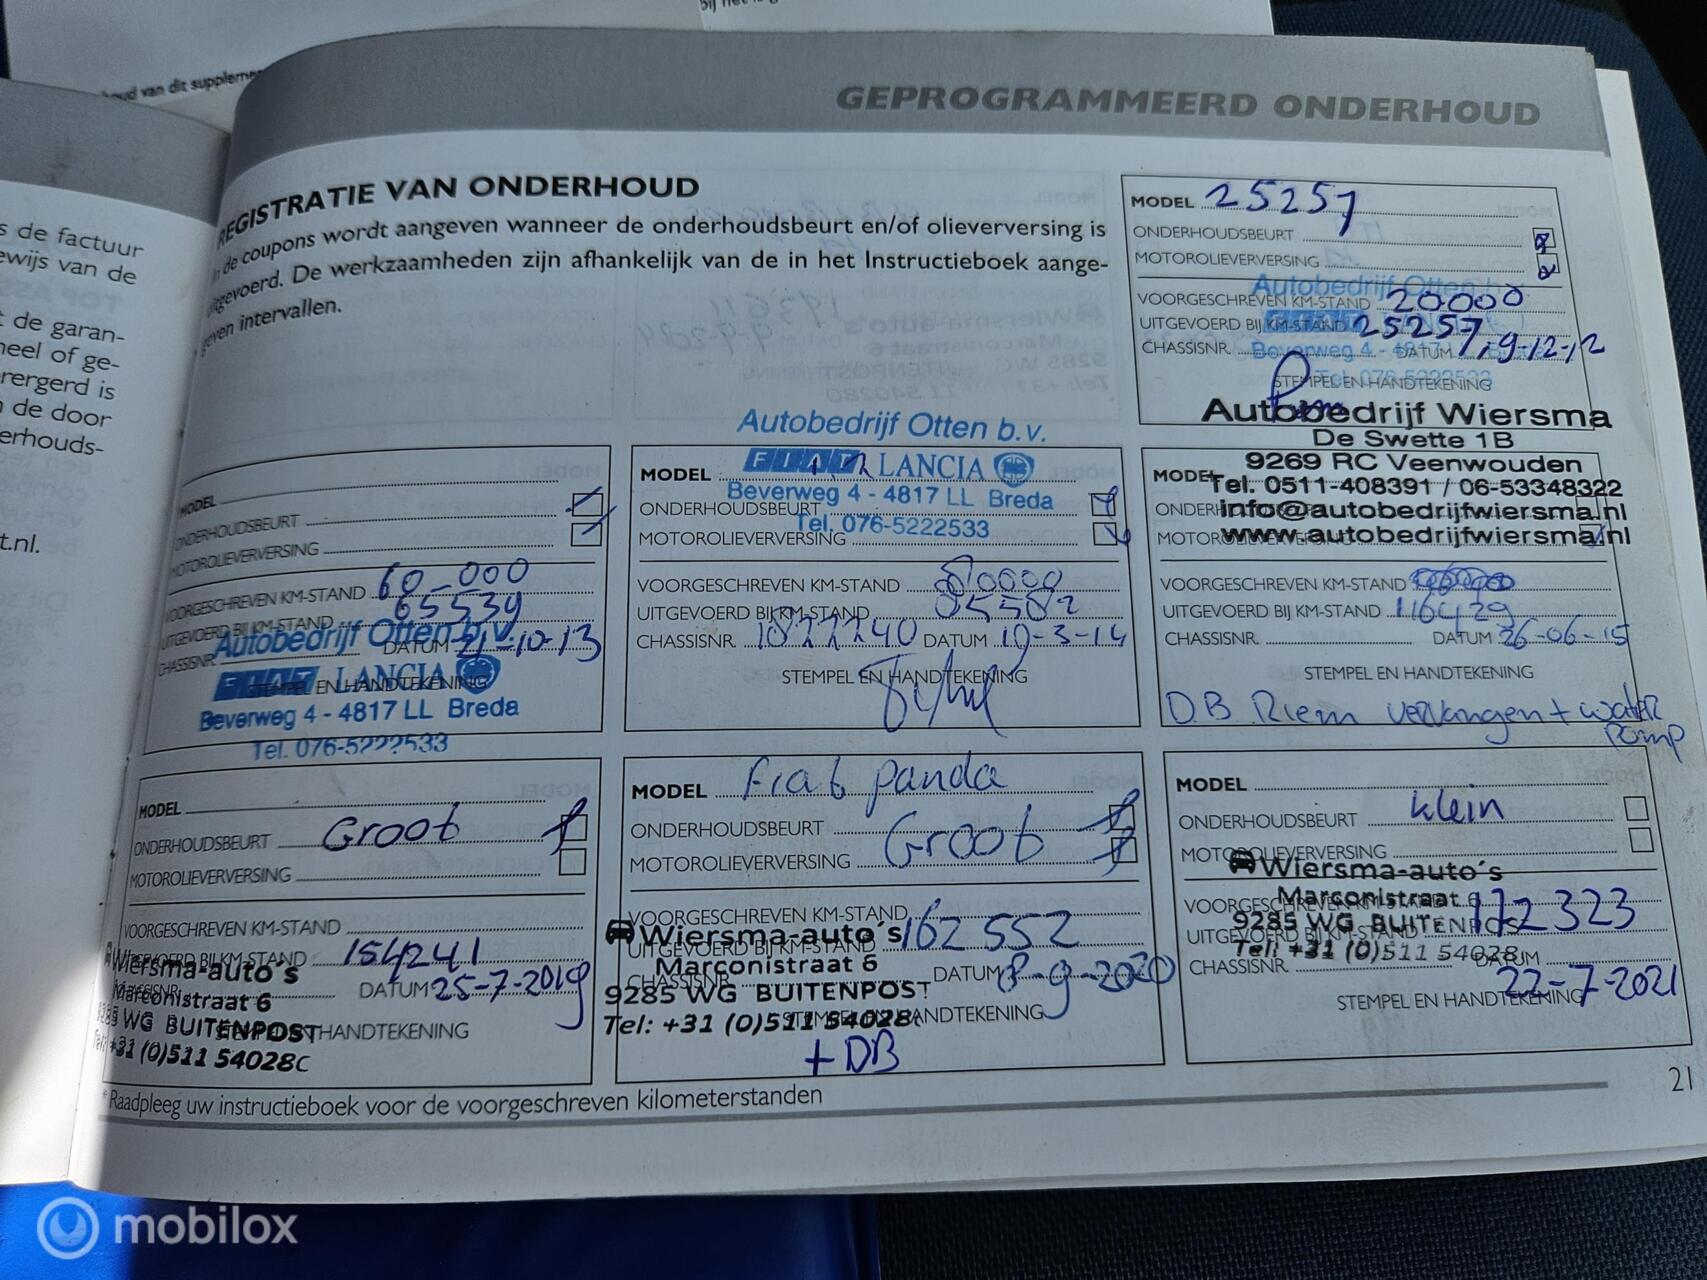 oud van dit supplemen
s de factuur
ewijs van de
t de garan-
neel of ge-
rergerd is
n de door
erhouds-
t.nl.
GEPROGRAMMEERD ONDERHOUD
REGISTRATIE VAN ONDERHOUD
In de coupons wordt aangeven wanneer de onderhoudsbeurt en/of olieverversing is
uitgevoerd. De werkzaamheden zijn afhankelijk van de in het Instructieboek aange-
geven intervallen.
MODEL 25257
ONDERHOUDSBEURT
MOTOROLIEVERVERSING
Autobedrijf Otten b.v.
VOORGESCHREVEN KM-STAND 20000
UITGEVOERD BIJ KM-STAND 25257
CHASSISNR. DATUM 19-12-12
Beverweg 4 - 4817
Tel. 076-5222533
STEMPEL EN HANDTEKENING
MODEL
ONDERHOUDSBEURT
MOTOROLIEVERVERSING
VOORGESCHREVEN KM-STAND 60-000
UITGEVOERD BIJ KM-STAND 65539
CHASSISNR. DATUM 21-10-13
STEMPEL EN HANDTEKENING
Autobedrijf Otten b.v.
FIAT LANCIA
Beverweg 4 - 4817 LL Breda
Tel. 076-5222533
Autobedrijf Otten b.v.
FIAT LANCIA
Beverweg 4 - 4817 LL Breda
Tel. 076-5222533
MODEL
ONDERHOUDSBEURT
MOTOROLIEVERVERSING
VOORGESCHREVEN KM-STAND 80000
UITGEVOERD BIJ KM-STAND 85582
CHASSISNR. 1822240 DATUM 19-3-14
STEMPEL EN HANDTEKENING
Autobedrijf Wiersma
De Swette 1B
9269 RC Veenwouden
Tel. 0511-408391 / 06-53348322
info@autobedrijfwiersma.nl
www.autobedrijfwiersma.nl
MODEL
VOORGESCHREVEN KM-STAND
UITGEVOERD BIJ KM-STAND 116429
CHASSISNR. DATUM 26-06-15
STEMPEL EN HANDTEKENING
D.B. Riem vervangen + water
pomp
MODEL
ONDERHOUDSBEURT Groot
MOTOROLIEVERVERSING
VOORGESCHREVEN KM-STAND
UITGEVOERD BIJ KM-STAND 154241
DATUM 25-7-2019
STEMPEL EN HANDTEKENING
Wiersma-auto's
Marconistraat 6
9285 WG BUITENPOST
Tel: +31 (0)511 54028
MODEL Fiat panda
ONDERHOUDSBEURT Groot
MOTOROLIEVERVERSING
VOORGESCHREVEN KM-STAND
UITGEVOERD BIJ KM-STAND 162552
CHASSISNR. DATUM 8-9-2020
STEMPEL EN HANDTEKENING
Wiersma-auto's
Marconistraat 6
9285 WG BUITENPOST
Tel: +31 (0)511 54028
+ DB
MODEL
ONDERHOUDSBEURT klein
MOTOROLIEVERVERSING
VOORGESCHREVEN KM-STAND
UITGEVOERD BIJ KM-STAND 172323
CHASSISNR. DATUM 22-7-2021
STEMPEL EN HANDTEKENING
Wiersma-auto's
Marconistraat
9285 WG BUITENPOST
Tel: +31 (0)511 54028
* Raadpleeg uw instructieboek voor de voorgeschreven kilometerstanden
21
mobilox